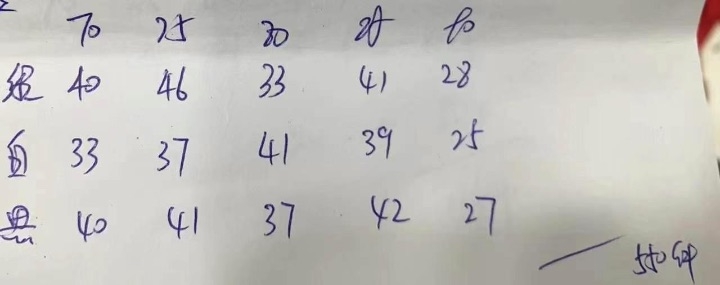 70 75 80 85 90
40 46 33 41 28
白 33 37 41 39 25
黑 40 41 37 42 27
550